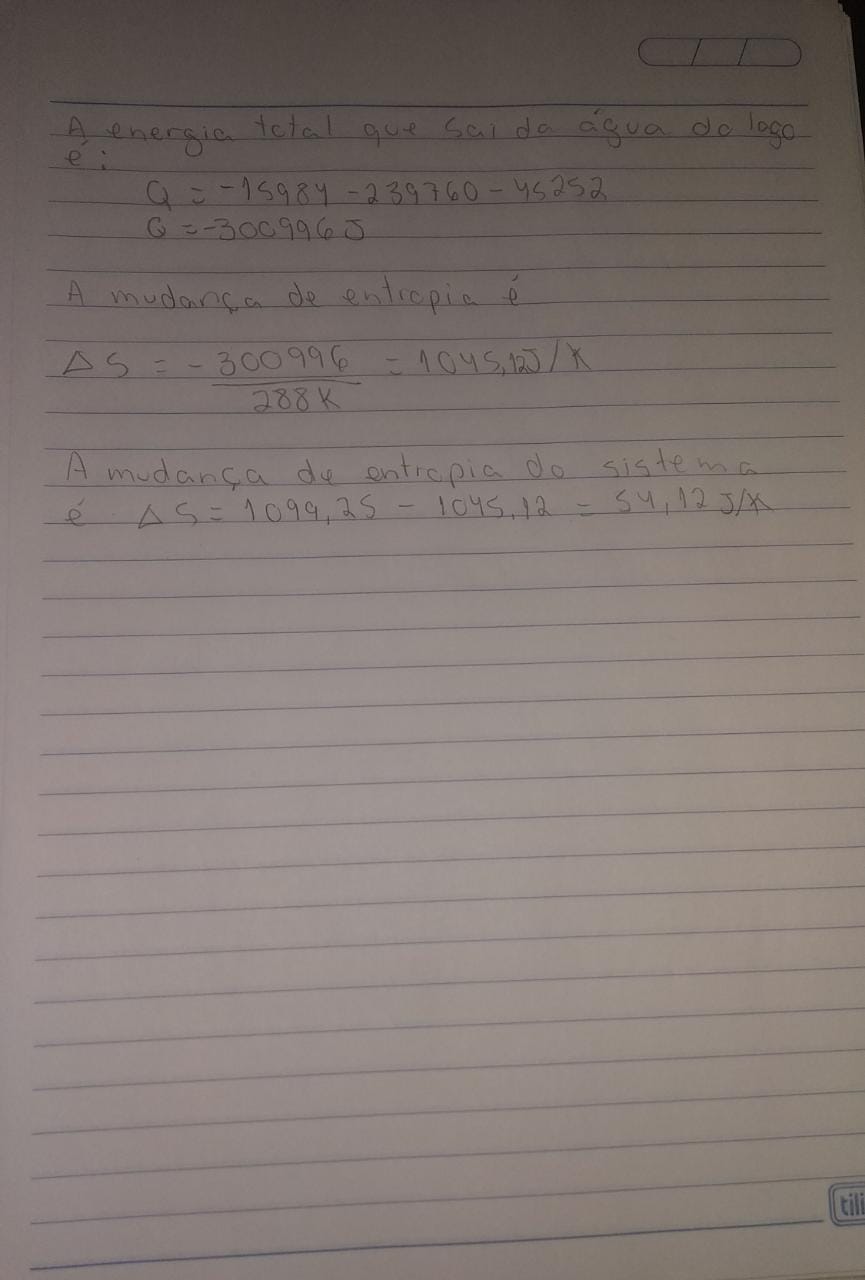 A energia total que sai da água do lago
é:
Q = -15984 - 239760 - 45252
Q = -300996 J
A mudança de entropia é
ΔS = - 300996 = 1045,12J/K
288K
A mudança de entropia do sistema
é ΔS = 1099,25 - 1045,12 = 54,12 J/K
tili